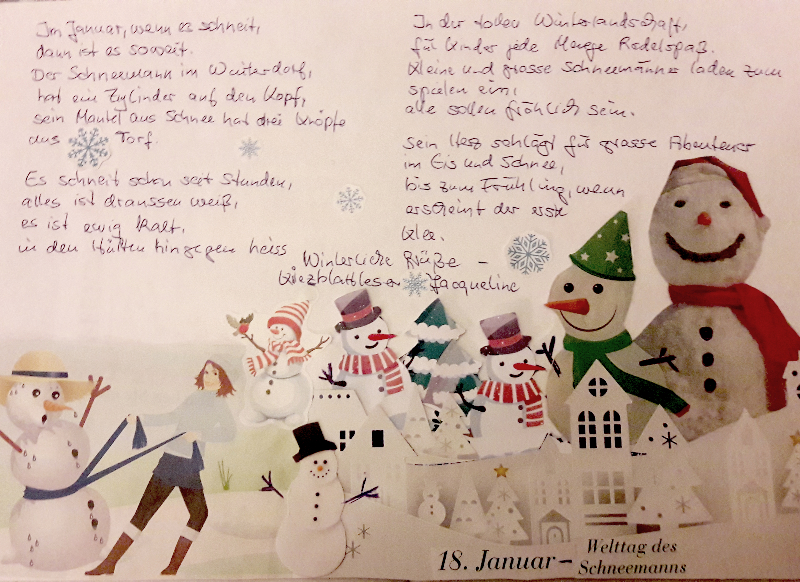 Im Januar, wenn es schneit,
dann ist es soweit.
Der Schneemann im Winterdorf,
hat ein Zylinder auf den Kopf,
sein Mantel aus Schnee hat drei Knöpfe
aus Torf.
Es schneit schon seit Stunden,
alles ist draussen weiß,
es ist ewig kalt,
in den Hütten hingegen heiss
In der tollen Winterlandschaft,
für Kinder jede Menge Rodelspaß.
Kleine und grosse Schneemänner laden zum
spielen ein,
alle sollen fröhlich sein.
Sein Herz schlägt für grosse Abenteuer
im Eis und Schnee,
bis zum Frühling, wenn
erscheint der erste
Klee.
Winterliche Grüße -
Kiezblattleser Jacqueline
18. Januar - Welttag des
Schneemanns